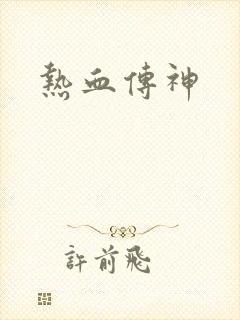 熱血傳神
許前飛